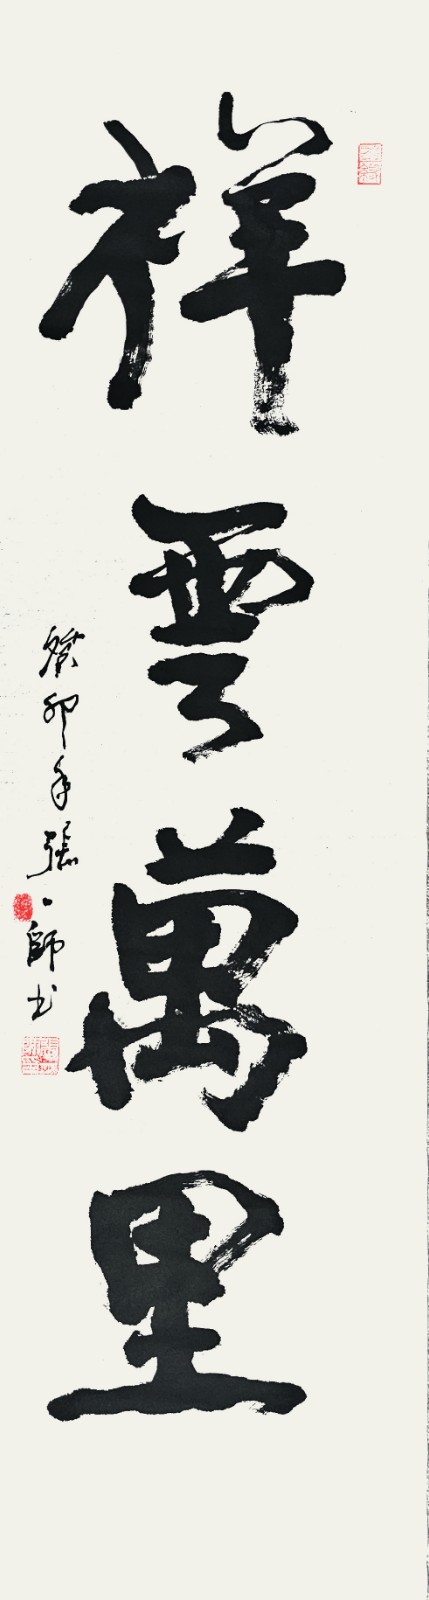 祥雲萬里
癸卯年張一師書